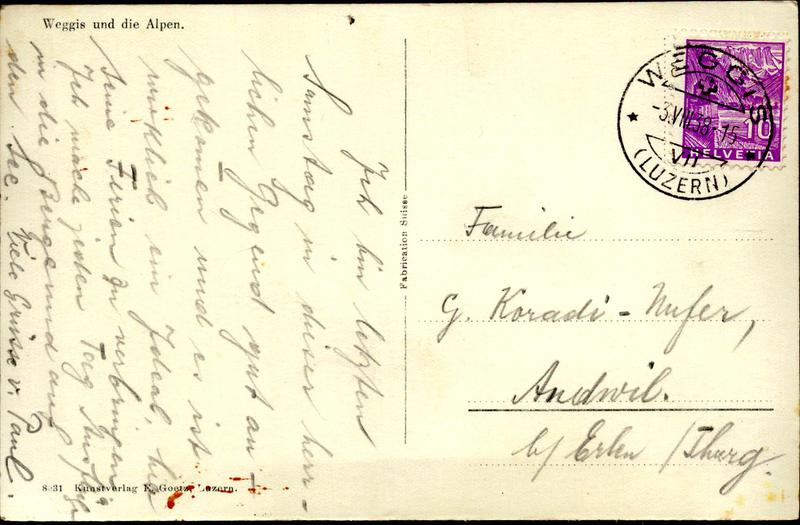 Weggis und die Alpen.
Ich bin letzten
Samstag in dieser herr-
lichen Gegend gut an-
gekomen und es ist
wirklich ein Ideal, hier
seine Ferien zu verbringen
Ich mache jeden Tag Ausflüge
in die Berge und auf
den See.
Viele Grüsse v. Paul.
Fabrication Suisse
8931 Kunstverlag E. Goetz, Luzern.
WEGGIS
-3.VIII.38-15
VII
(LUZERN)
10
HELVETIA
Familie
G. Koradi-Nufer,
Andwil.
b/ Erlen /Thurg.